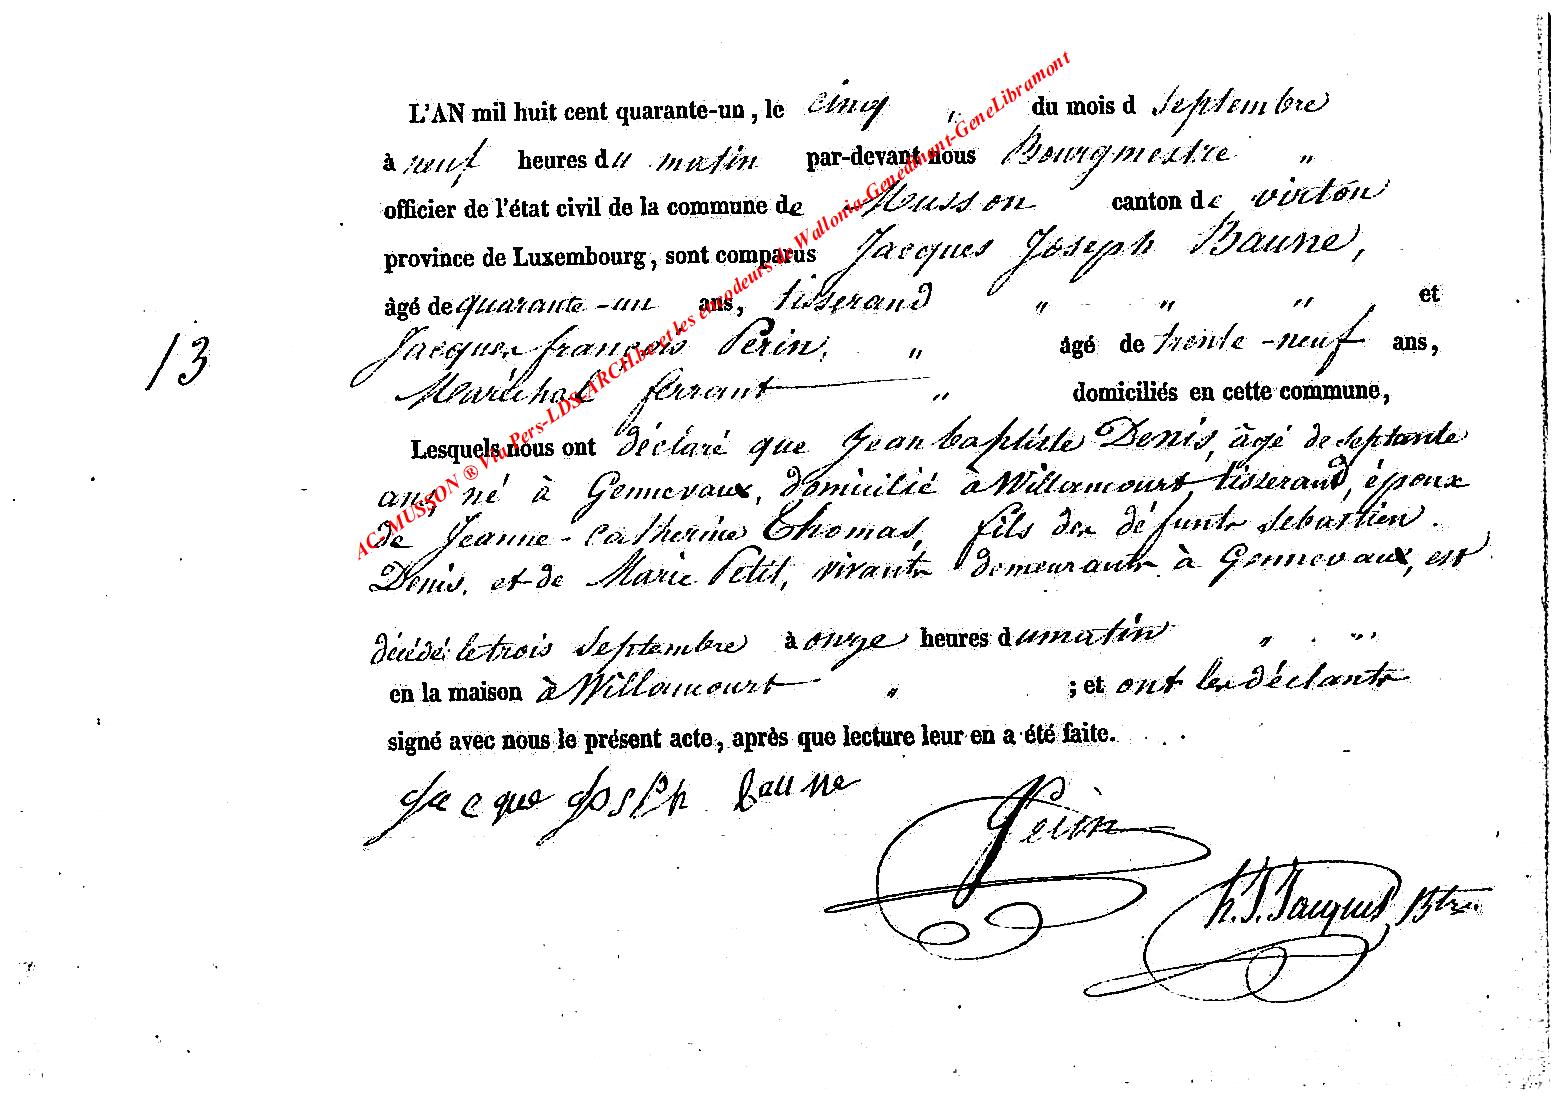 L'AN mil huit cent quarante-un, le cinq " du mois d septembre
à neuf heures du matin par-devant nous Bourgmestre "
officier de l'état civil de la commune de Musson canton de virton
province de Luxembourg, sont comparus Jacques Joseph Baune,
âgé de quarante-un ans, tisserand " " " , et
13
Jacques françois Perin, " âgé de trente-neuf ans,
Maréchal ferrant " domiciliés en cette commune,
Lesquels nous ont déclaré que Jean baptiste Denis, âgé de septante
ans, né à Gennevaux, domicilié à Willancourt, tisserand, époux
de Jeanne-Catherine Thomas, fils des défunts sebastien
Denis, et de Marie Petit, vivants demeurants à Gennevaux, est
décédé le trois septembre à onze heures du matin " "
en la maison à Willancourt " ; et ont les déclants
signé avec nous le présent acte, après que lecture leur en a été faite.
Jacque Joseph baune
Perin
h. J. Jacques Btre
AC. MUSSON ® Via Pers-LDS-ARCH.be et les encodeurs de Wallonia-Genedinant-GeneLibramont